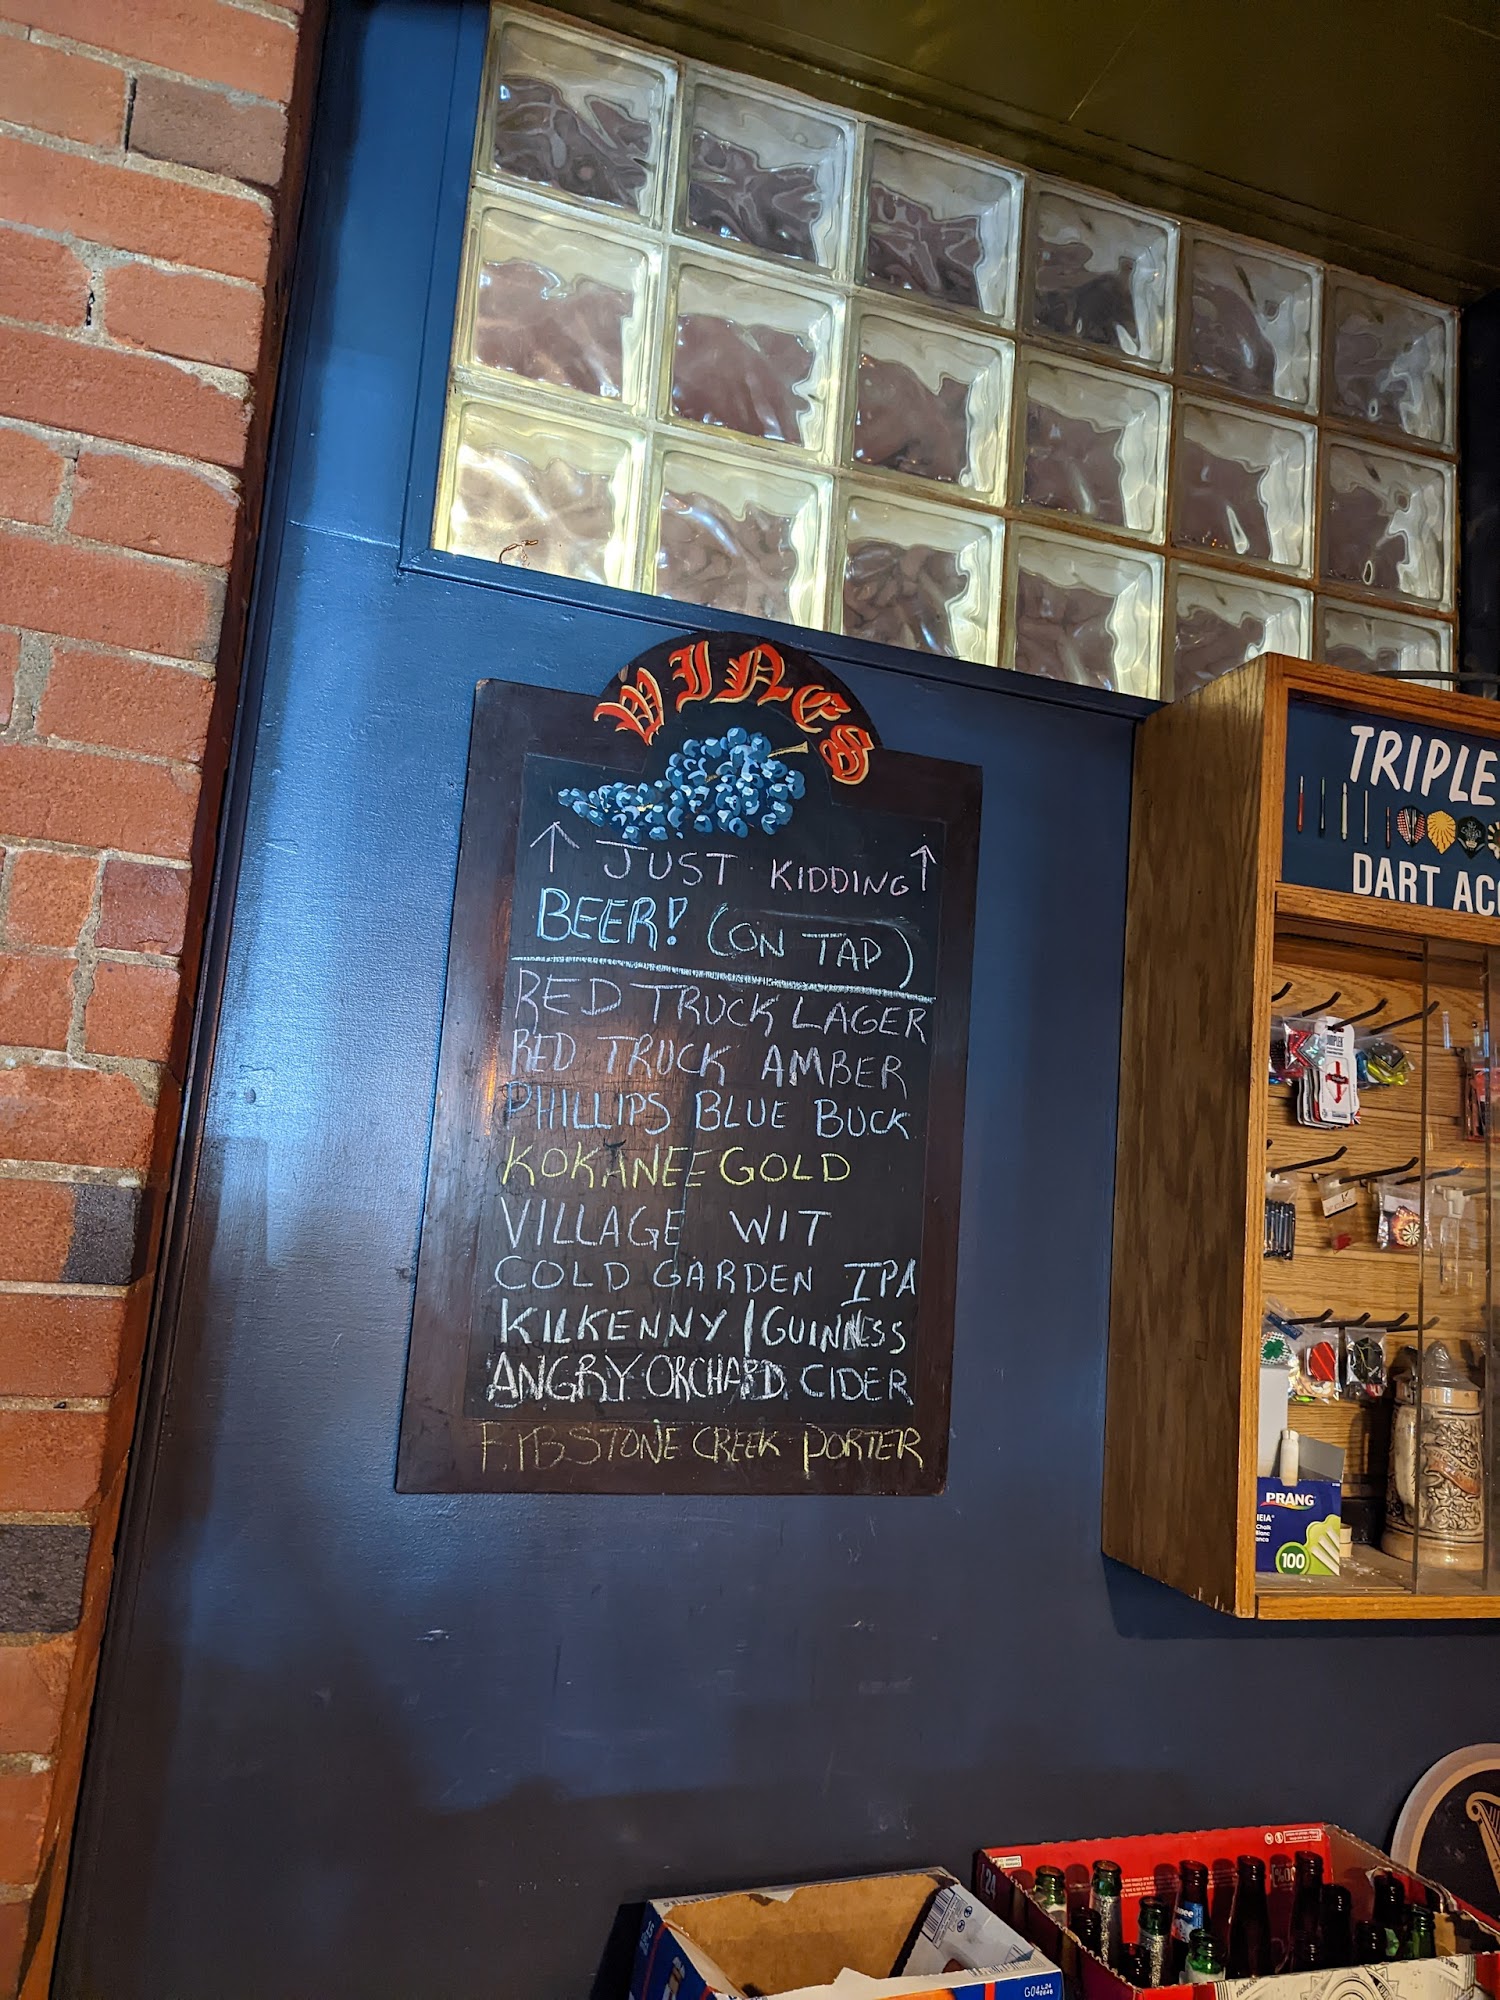 WINES
↑ JUST KIDDING ↑
BEER! (ON TAP)
RED TRUCK LAGER
RED TRUCK AMBER
PHILLIPS BLUE BUCK
KOKANEE GOLD
VILLAGE WIT
COLD GARDEN IPA
KILKENNY / GUINNESS
ANGRY ORCHARD CIDER
RIBSTONE CREEK PORTER
TRIPLE
DART ACC
PRANG
100